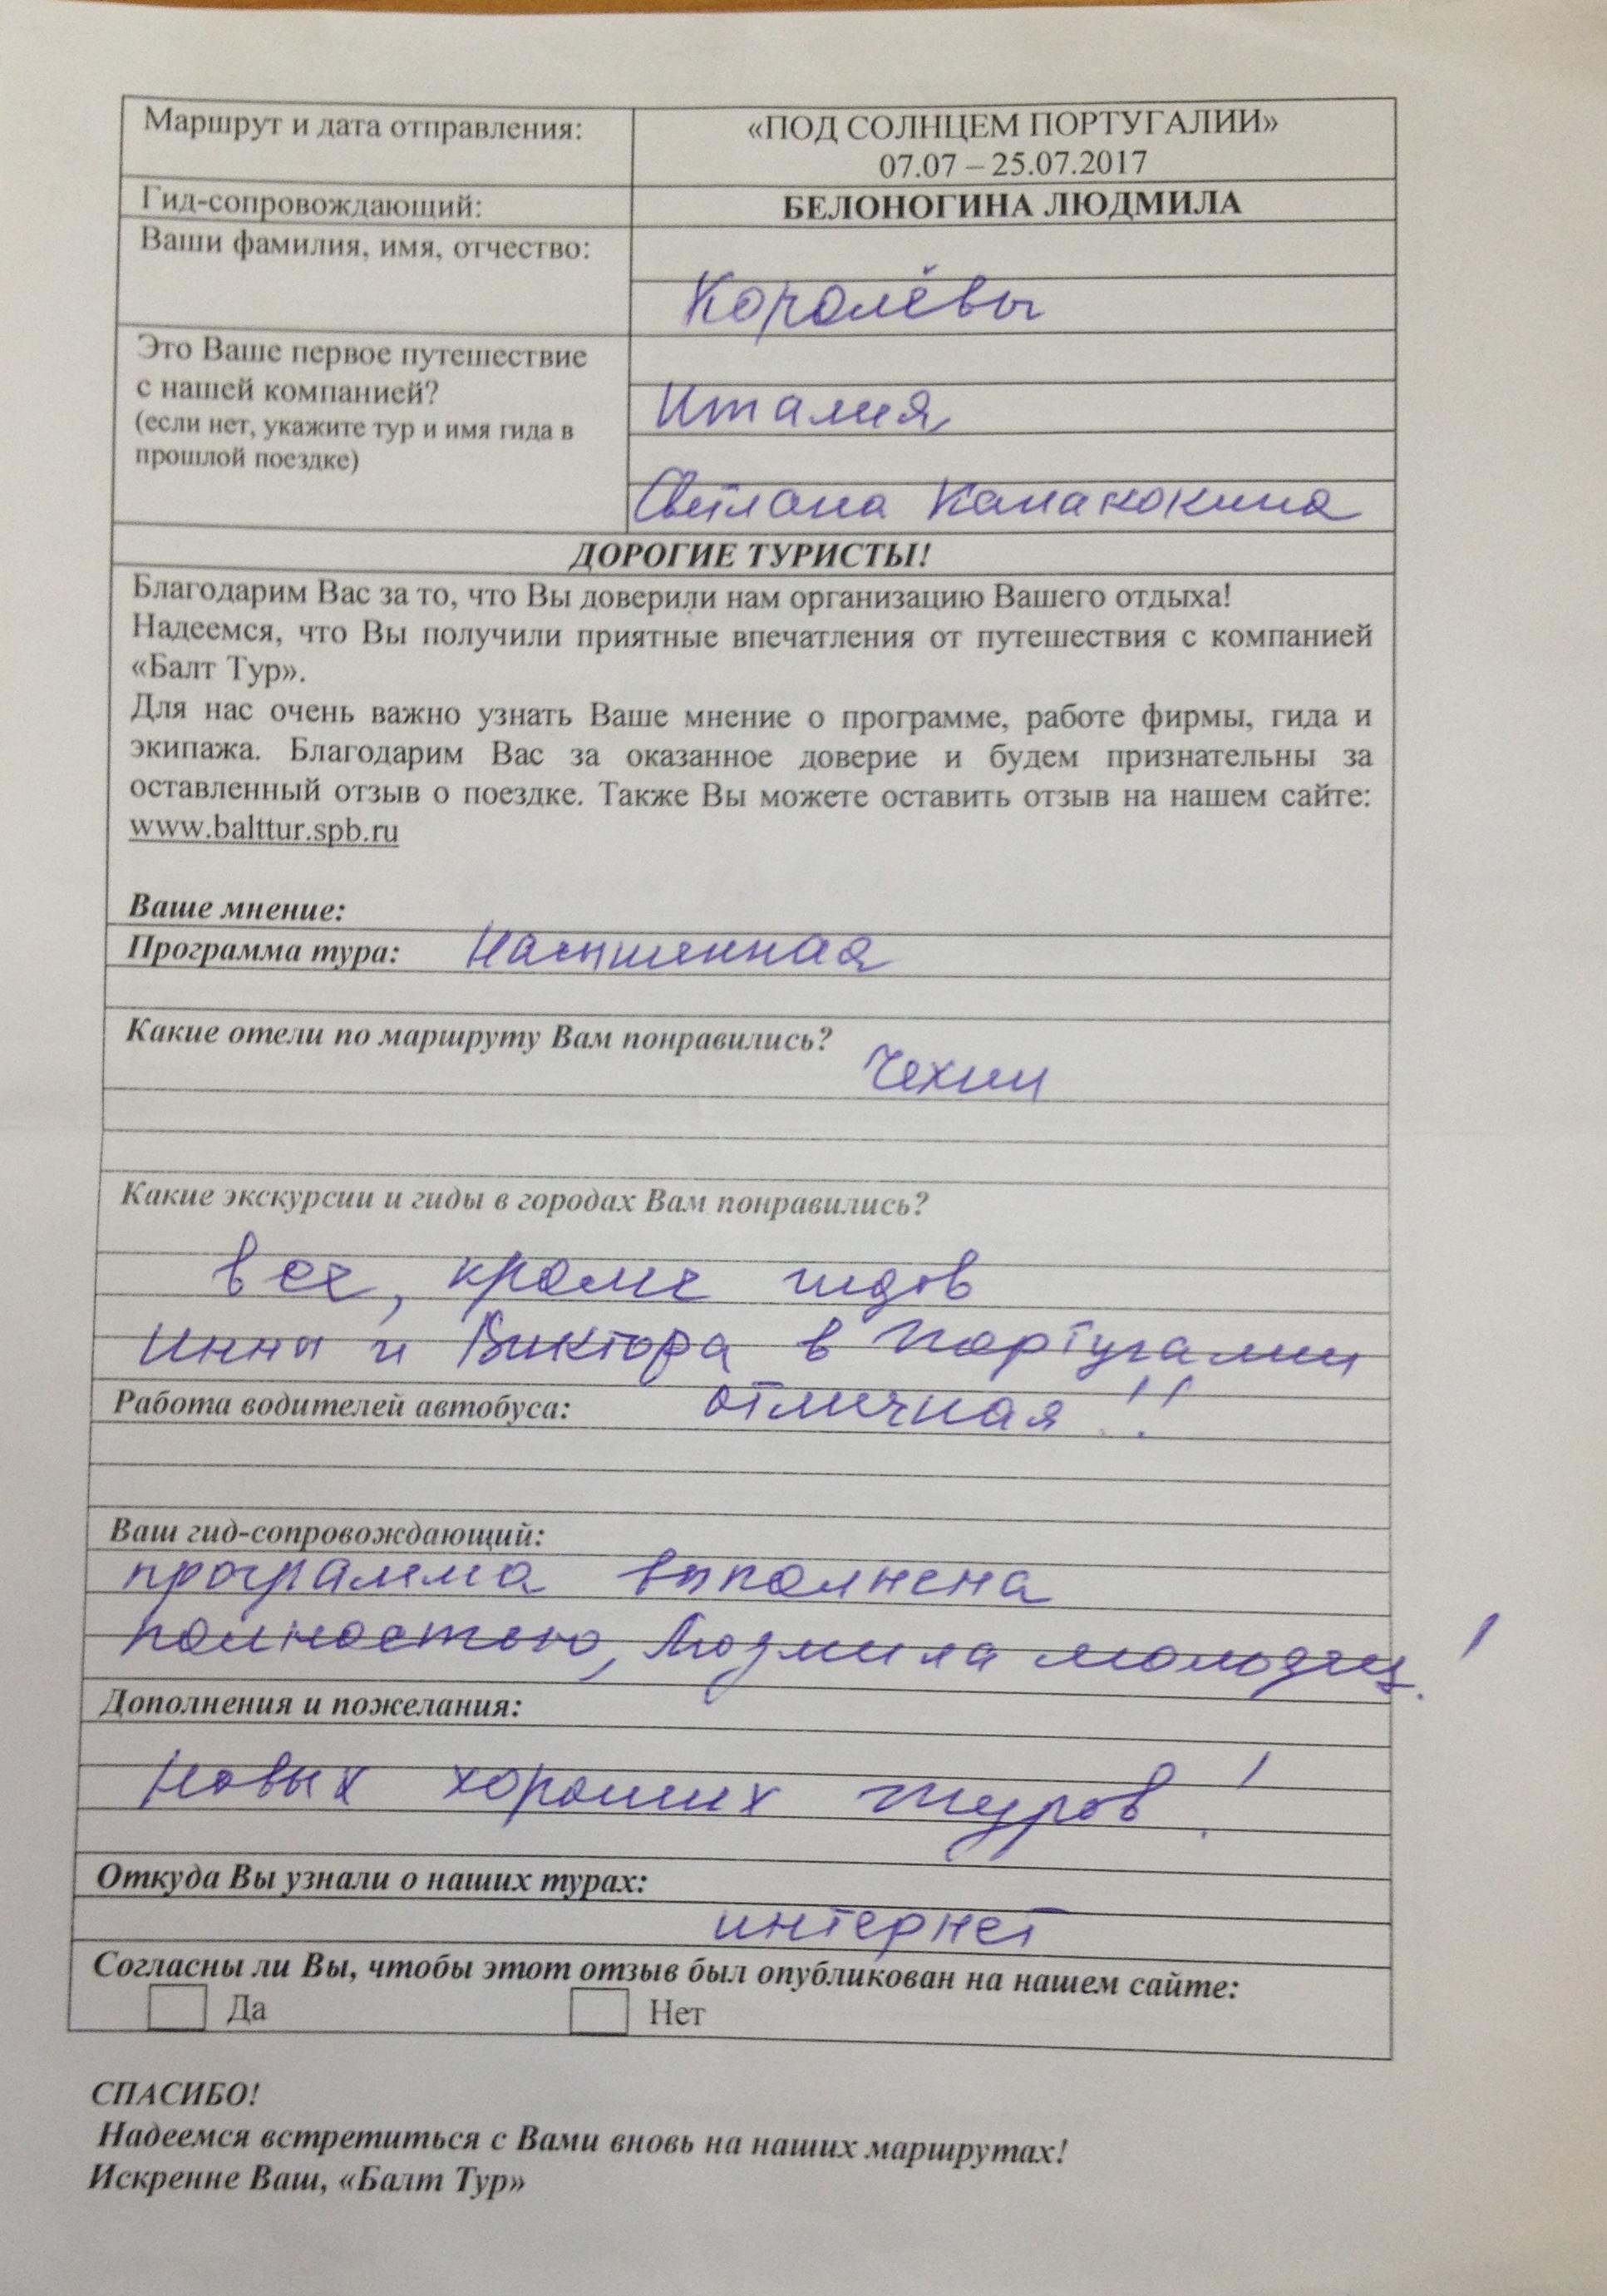 Маршрут и дата отправления:
«ПОД СОЛНЦЕМ ПОРТУГАЛИИ»
07.07 – 25.07.2017
Гид-сопровождающий:
БЕЛОНОГИНА ЛЮДМИЛА
Ваши фамилия, имя, отчество:
Королёвы
Это Ваше первое путешествие
с нашей компанией?
(если нет, укажите тур и имя гида в
прошлой поездке)
Италия,
Светлана
ДОРОГИЕ ТУРИСТЫ!
Благодарим Вас за то, что Вы доверили нам организацию Вашего отдыха!
Надеемся, что Вы получили приятные впечатления от путешествия с компанией
«Балт Тур».
Для нас очень важно узнать Ваше мнение о программе, работе фирмы, гида и
экипажа. Благодарим Вас за оказанное доверие и будем признательны за
оставленный отзыв о поездке. Также Вы можете оставить отзыв на нашем сайте:
www.balttur.spb.ru
Ваше мнение:
Программа тура: насыщенная
Какие отели по маршруту Вам понравились?
Чехии
Какие экскурсии и гиды в городах Вам понравились?
все, кроме гидов
Инны и Виктора в Португалии
Работа водителей автобуса: отличная!!
Ваш гид-сопровождающий:
программа выполнена
полностью, Людмила молодец!
Дополнения и пожелания:
Новых хороших туров!
Откуда Вы узнали о наших турах:
интернет
Согласны ли Вы, чтобы этот отзыв был опубликован на нашем сайте:
Да Нет
СПАСИБО!
Надеемся встретиться с Вами вновь на наших маршрутах!
Искренне Ваш, «Балт Тур»